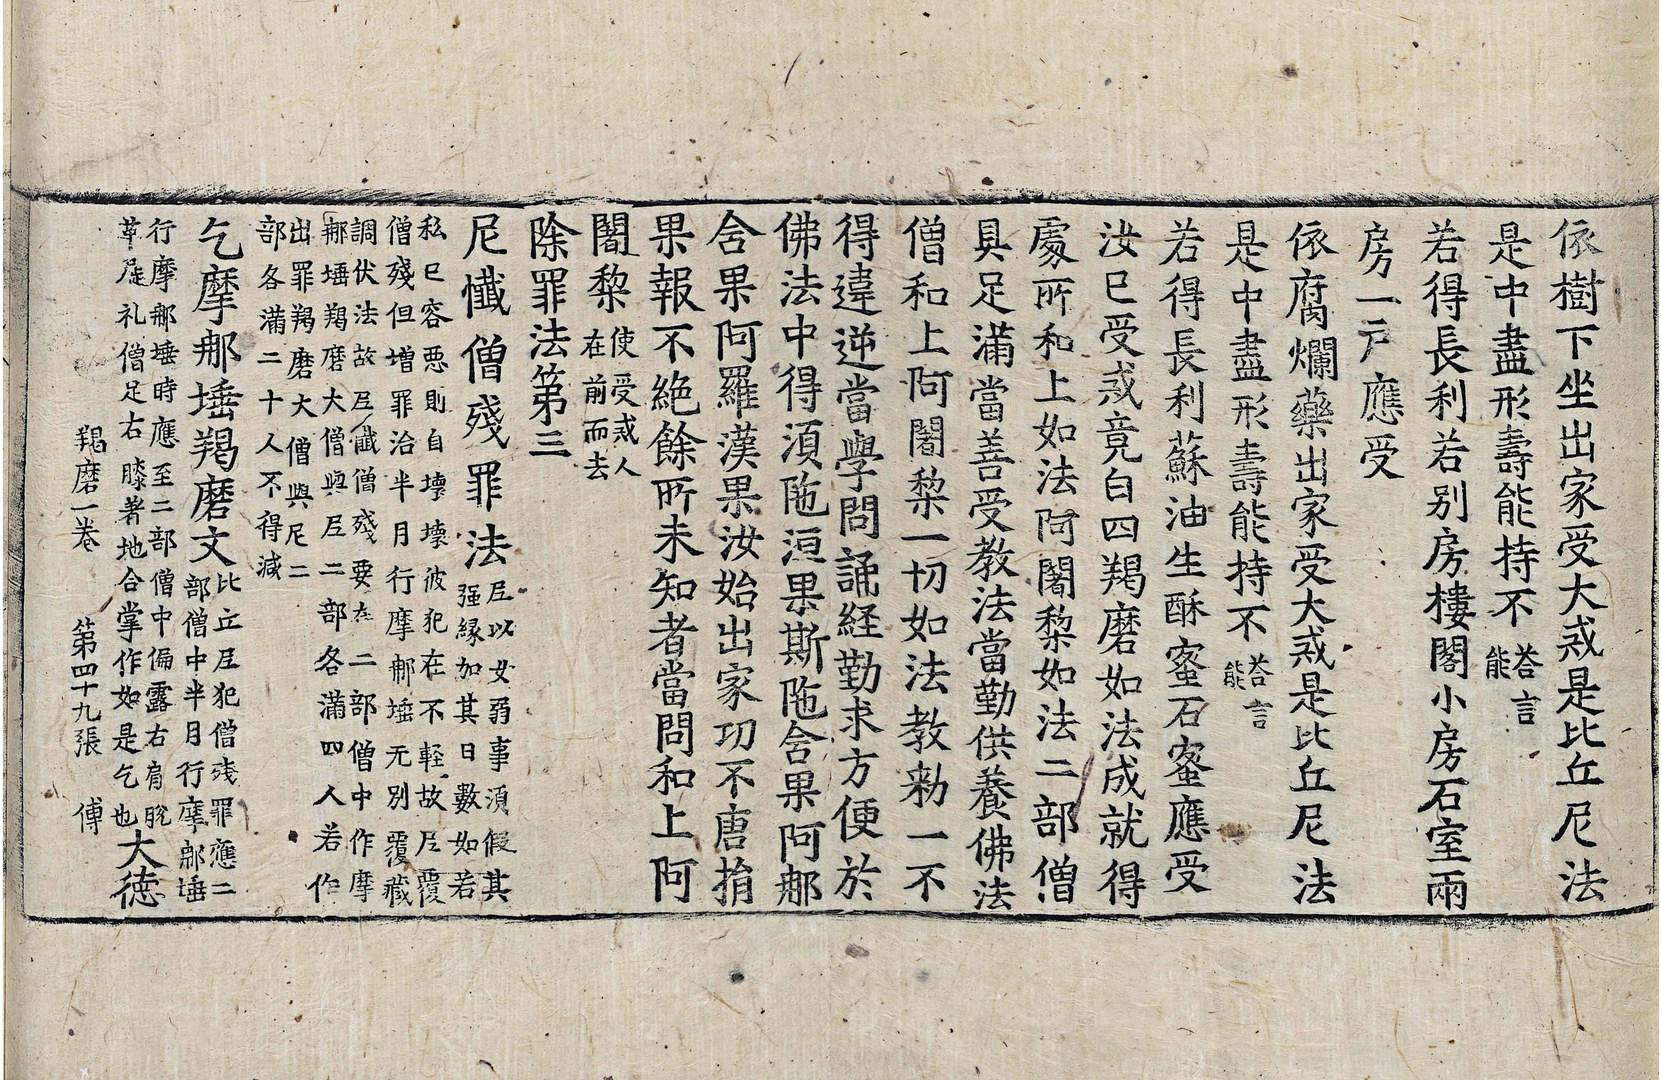 依樹下坐出家受大戒是比丘尼法
是中盡形壽能持不答言能
若得長利若別房樓閣小房石室兩
房一户應受
依腐爛藥出家受大戒是比丘尼法
是中盡形壽能持不答言能
若得長利蘇油生酥蜜石蜜應受
汝已受戒竟白四羯磨如法成就得
處所和上如法阿闍梨如法二部僧
具足滿當善受教法當勤供養佛法
僧和上阿闍梨一切如法教勑一不
得違逆當學問誦経勤求方便於
佛法中得湏陁洹果斯陁含果阿那
含果阿羅漢果汝始出家功不唐捐
果報不絶餘所未知者當問和上阿
闍梨使受戒人在前而去
除罪法第三
尼懺僧殘罪法尼以女弱事湏假其
强縁加其日數如若
私已容悪則自壊壊彼犯在不軽故尼覆
僧殘但增罪治半月行摩那埵无别覆藏
調伏法故尼懺僧殘要在二部僧中作摩
那埵羯磨大僧與尼二部各滿四人若作
出罪羯磨大僧與尼二
部各滿二十人不得減
乞摩那埵羯磨文比丘尼犯僧殘罪應二
部僧中半月行摩那埵
行摩那埵時應至二部僧中偏露右肩脫
革屣礼僧足右膝著地合掌作如是乞也大德
羯磨一卷 第四十九張 傅